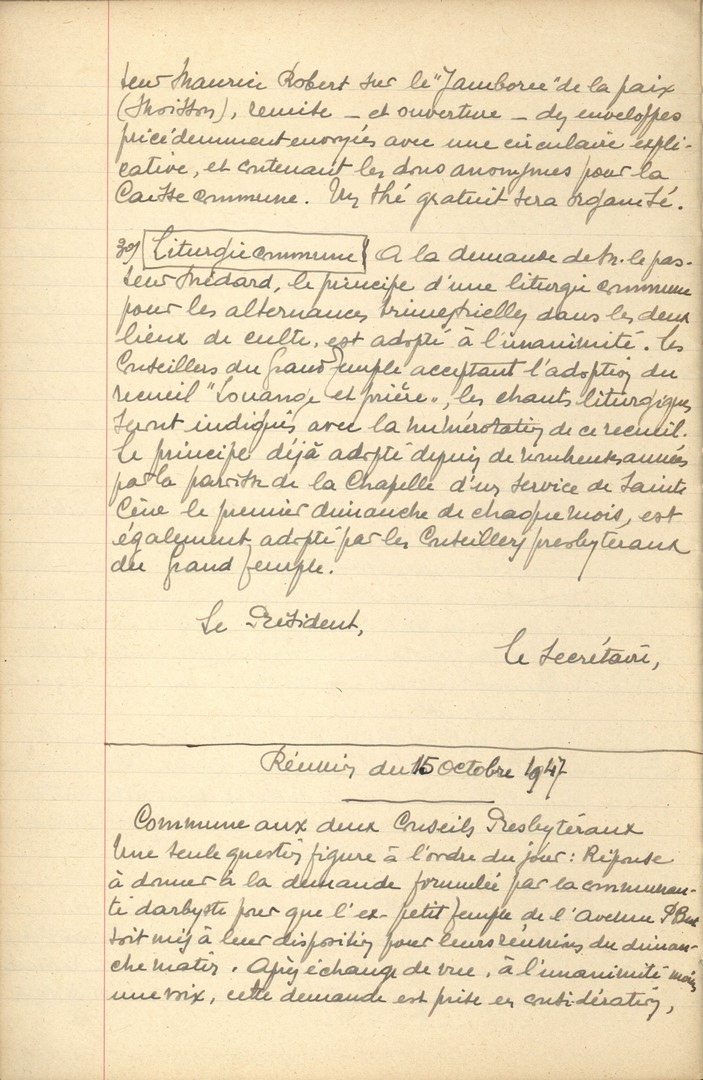 teur Maurice Robert sur le "Jamboree" de la paix
(Moisson), remise _ et ouverture _ des enveloppes
précédemment envoyées avec une circulaire expli-
cative, et contenant les dons anonymes pour la
Caisse commune. Un thé gratuit sera organisé.
3°/ Liturgie commune A la demande de M. le pas-
teur Médard, le principe d'une liturgie commune
pour les alternances trimestrielles dans les deux
lieux de culte, est adopté à l'unanimité. Les
Conseillers du Grand Temple acceptant l'adoption du
recueil "Louange et prière", les chants liturgiques
seront indiqués avec la numérotation de ce recueil.
Le principe déjà adopté depuis de nombreuses années
par la paroisse de la Chapelle d'un service de Sainte
Cène le premier dimanche de chaque mois, est
également adopté par les Conseillers presbytéraux
du Grand Temple.
Le Président,
Le Secrétaire,
Réunion du 15 octobre 1947
Commune aux deux Conseils Presbytéraux
Une seule question figure à l'ordre du jour : Réponse
à donner à la demande formulée par la communau-
té darbyste pour que l'ex-petit Temple de l'Avenue
soit mis à leur disposition pour leurs réunions du diman-
che matin. Après échange de vue, à l'unanimité moins
une voix, cette demande est prise en considération,